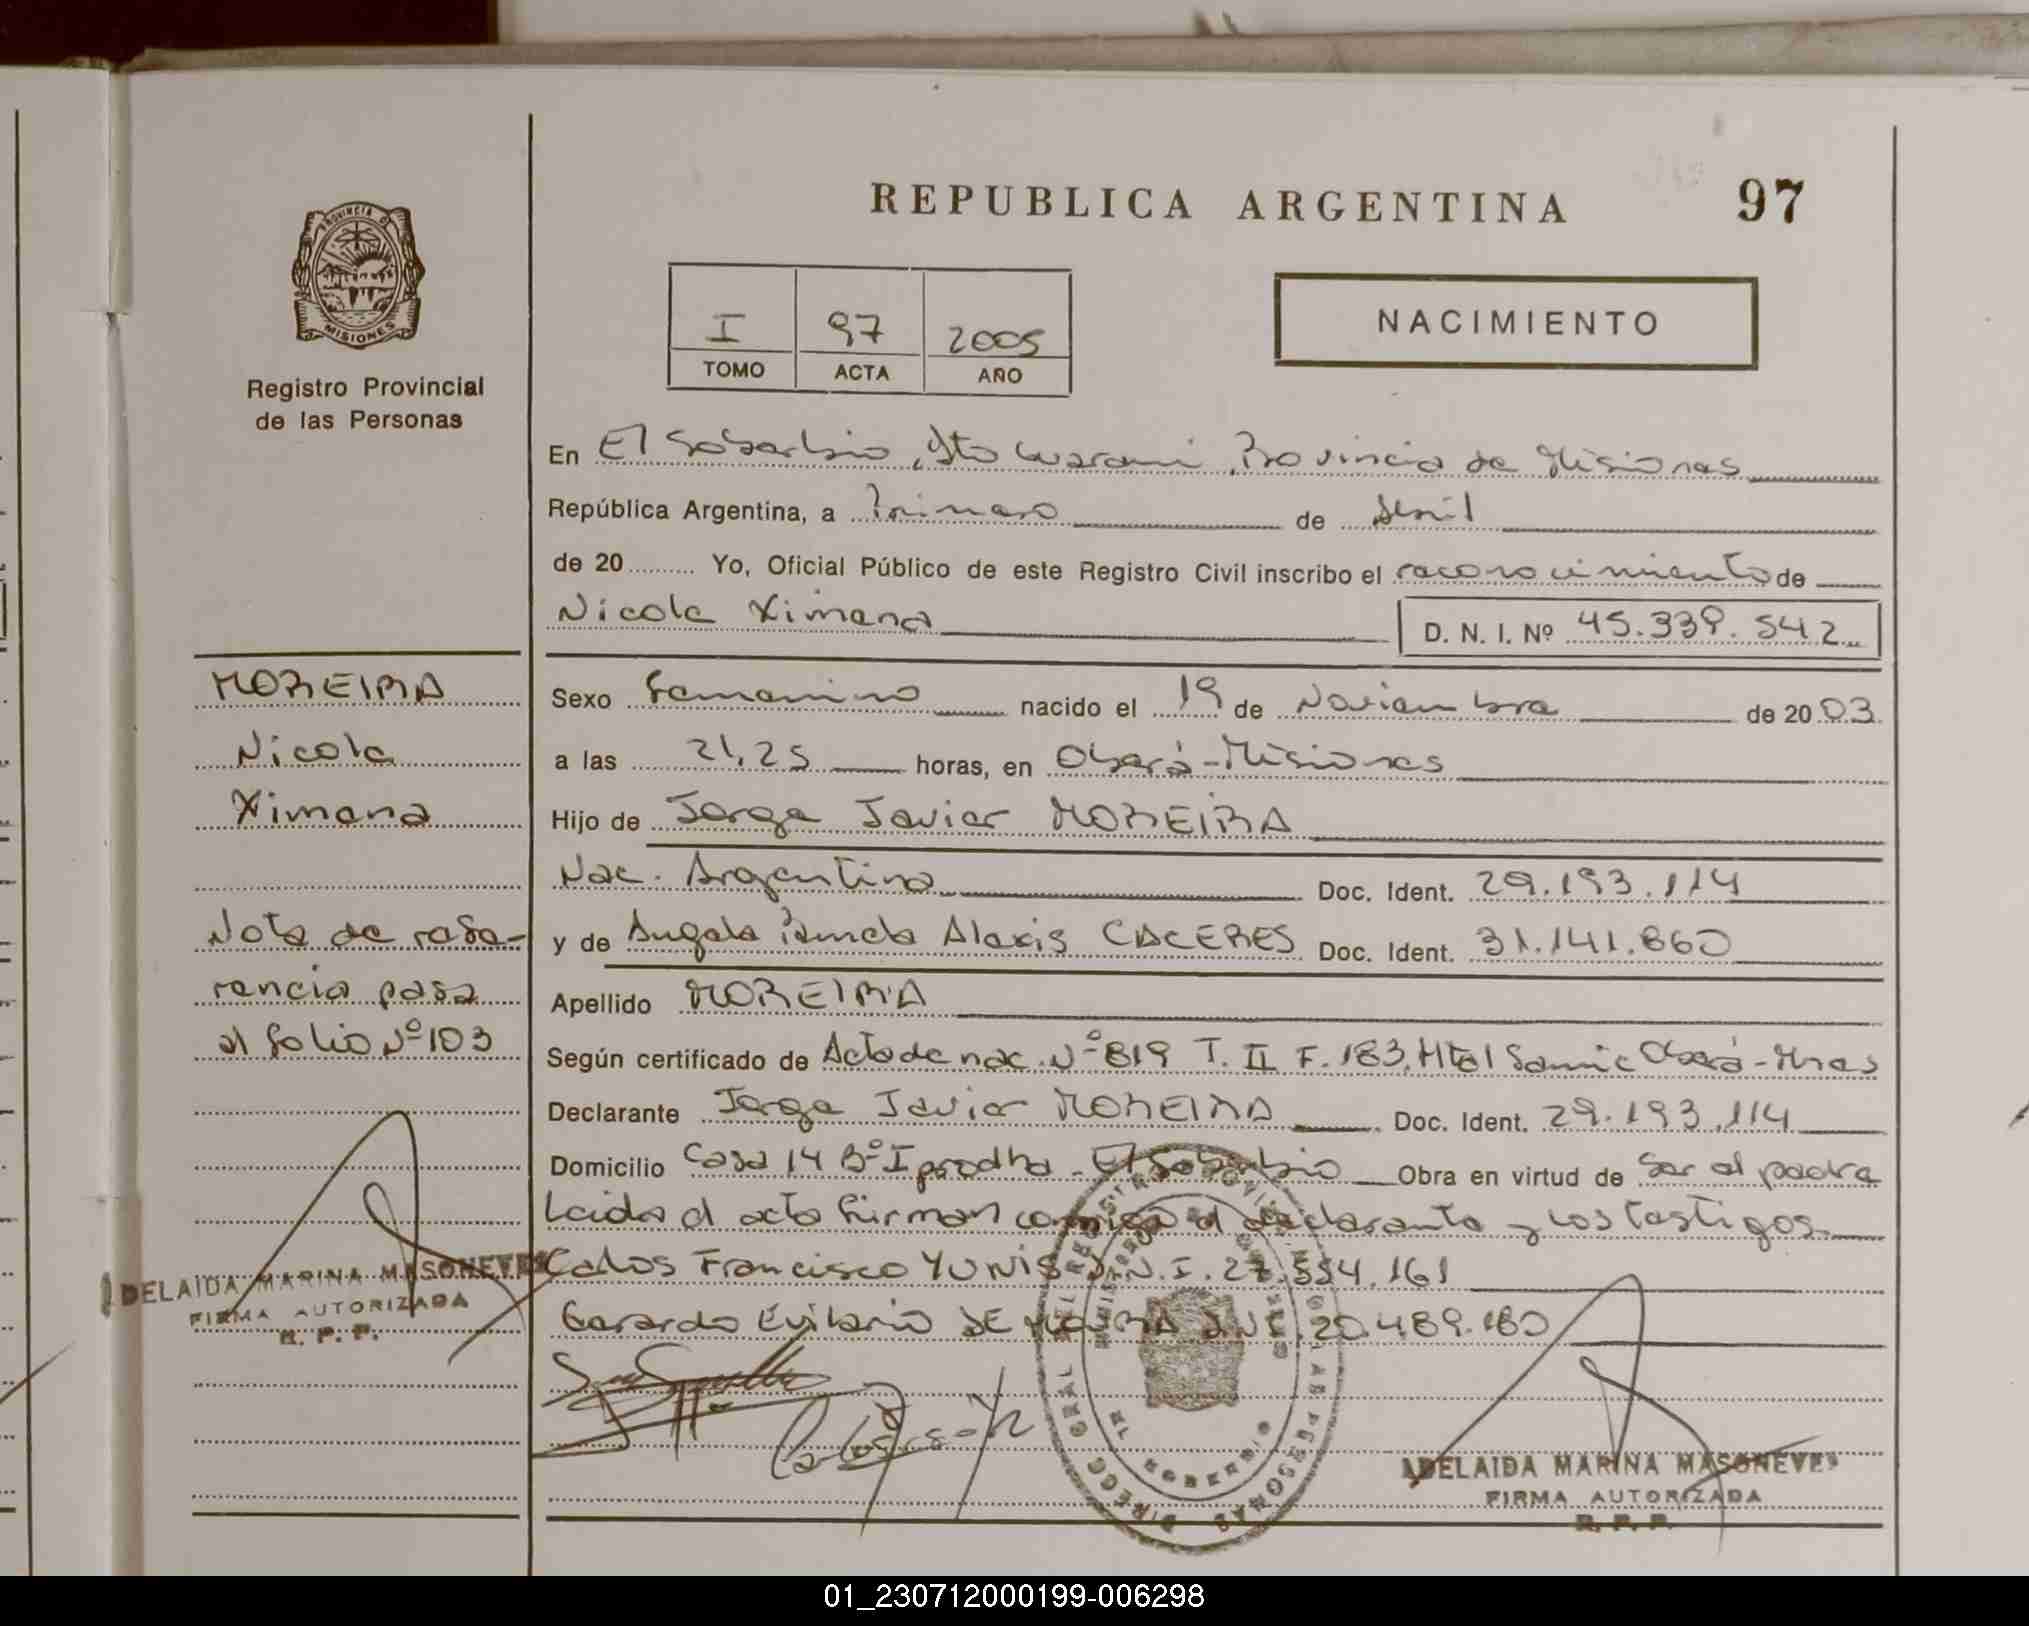 REPUBLICA ARGENTINA
97
PROVINCIA D
MISIONES
Registro Provincial
de las Personas
I 97 2005
TOMO ACTA AÑO
NACIMIENTO
En El Soberbio, Dto Guarani, Provincia de Misiones
República Argentina, a Primero de Abril
de 20 Yo, Oficial Público de este Registro Civil inscribo el reconocimiento de
Nicole Ximena D. N. I. Nº 45.339.542
Sexo Femenino nacido el 19 de Noviembre de 2003
a las 21,25 horas, en Oberá-Misiones
Hijo de Jorge Javier MOREIRA
Nac. Argentina Doc. Ident. 29.193.114
y de Angela Pamela Alexis CACERES Doc. Ident. 31.141.860
Apellido MOREIRA
Según certificado de Acta de nac. Nº 819 T. II F. 183. Htal Samic Oberá-Mnes
Declarante Jorge Javier MOREIRA Doc. Ident. 29.193.114
Domicilio Casa 14 Bº Iprodha - El Soberbio Obra en virtud de Ser el padre
Leida el acta firman conmigo el declarante y los testigos
Carlos Francisco YUNIS D.N.I. 27.554.161
Gerardo Evilario DE MOURA D.N.I. 20.489.180
MOREIRA
Nicole
Ximena
Nota de refe-
rencia pasa
al folio Nº 103
ADELAIDA MARINA MASONEVES
FIRMA AUTORIZADA
R. P. P.
ADELAIDA MARINA MASONEVES
FIRMA AUTORIZADA
R. P. P.
01_230712000199-006298